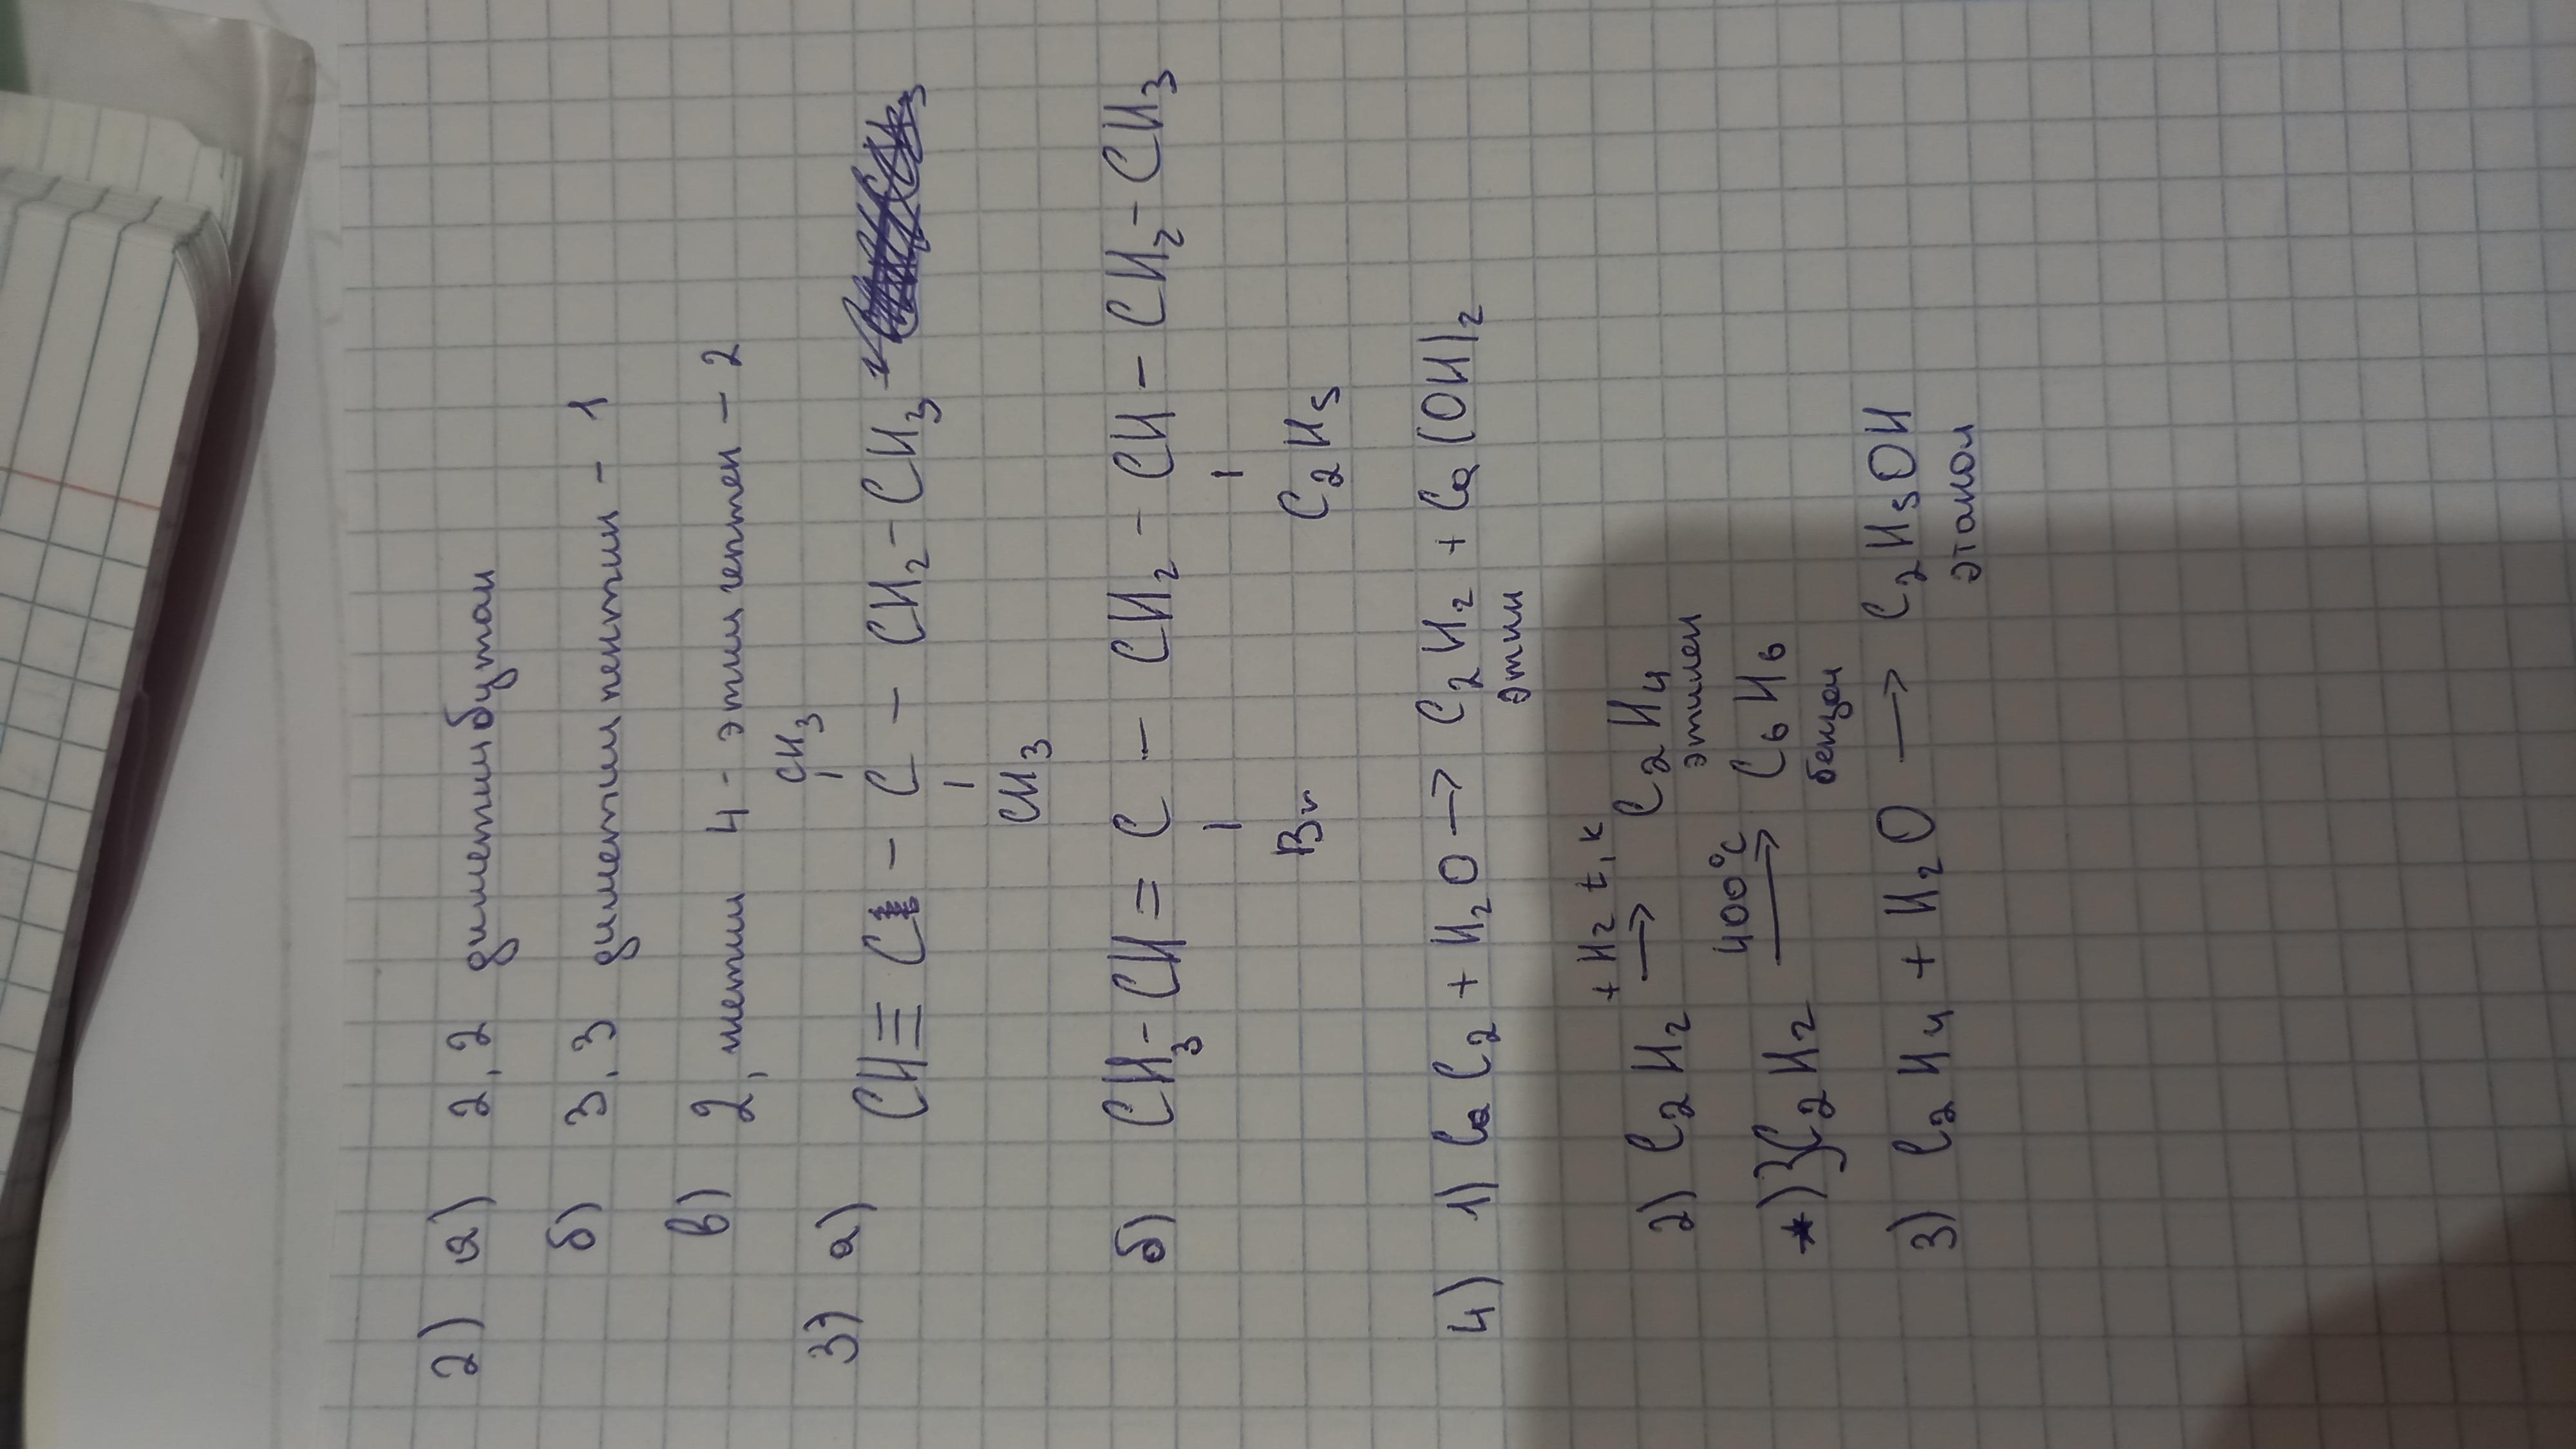 2) а) 2,2 диметилбутан
б) 3,3 диметилпентин - 1
в) 2, метил 4 - этилгептен - 2
CH3
3) а) CH≡C - C - CH2-CH3
CH3
б) CH3-CH=C - CH2-CH-CH2-CH3
Br C2H5
4) 1) CaC2 + H2O → C2H2 + Ca(OH)2
этин
+H2 t,k
2) C2H2 → C2H4
этилен
400°C
*) 3C2H2 → C6H6
бензол
3) C2H4 + H2O → C2H5OH
этанол